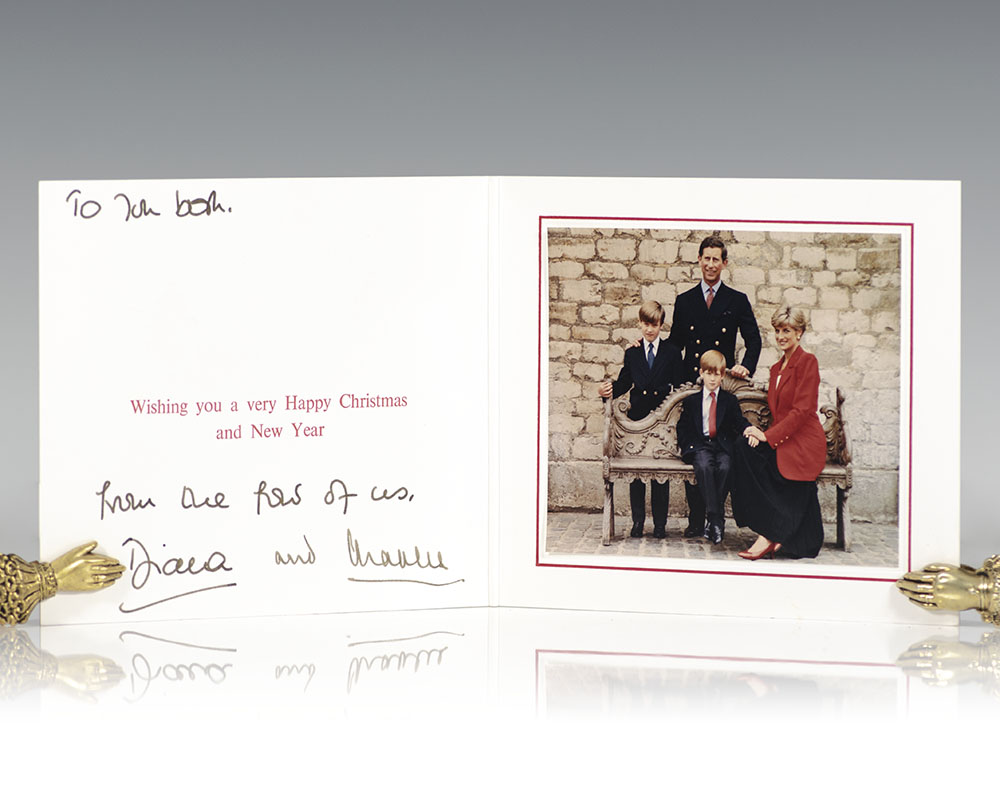 To You both.
Wishing you a very Happy Christmas
and New Year
from the four of us.
Diana and Charles